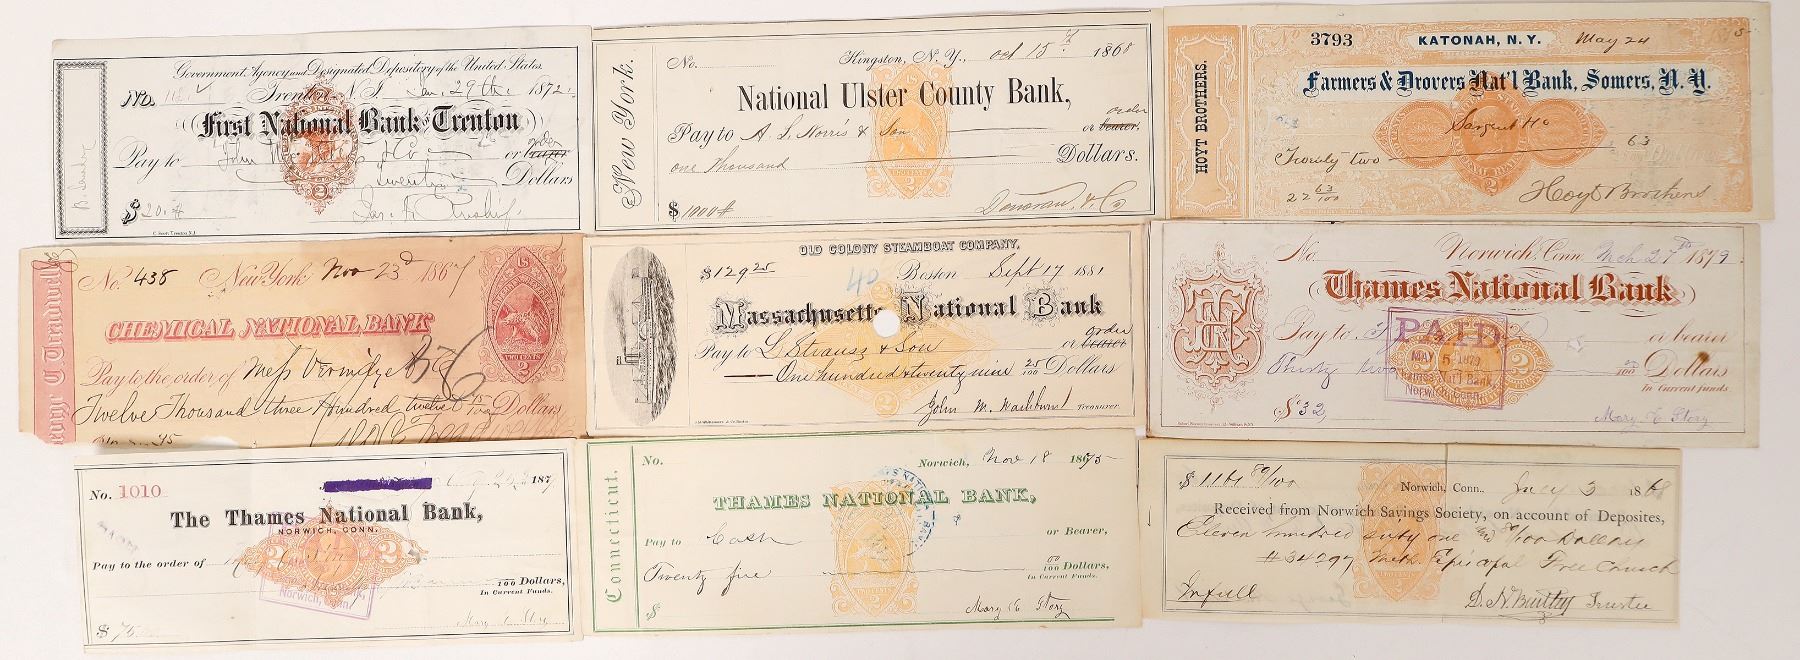 Government Agency and Designated Depository of the United States.
No.
Trenton N.J. Jan. 29th. 1872.
First National Bank of Trenton
Pay to John & Co or bearer order
Twenty Dollars
$ 20.
C. Scott, Trenton N.J.
New York.
No. Kingston, N.Y., Oct 15th 1868
National Ulster County Bank,
Pay to A. S. Norris & Son or bearer. order
one thousand Dollars.
$ 1000 Donovan & Co
HOYT BROTHERS.
No 3793 KATONAH, N.Y. May 24
Farmers & Drovers Nat'l Bank, Somers, N.Y.
Sargent & Co
Twenty two 63
22 63/100 Hoyt Brothers
George C Treadwell
No. 438 New York Nov 23d 1867
CHEMICAL NATIONAL BANK
U.S.
TWO CENTS
Pay to the order of Mess Vermilye & Co
Twelve Thousand three Hundred twelve 45/100 Dollars
OLD COLONY STEAMBOAT COMPANY,
$129 25 40 Boston Sept 17 1881
Massachusetts National Bank
Pay to L. Strauss & Son or bearer order
One hundred & twenty nine 25/100 Dollars
John M. Washburn Treasurer
No. Norwich, Conn. Mch 27th 1879
Thames National Bank
Pay to or bearer
PAID
MAY 5 1879
Thames Nat'l Bank,
Norwich, Conn.
Thirty two 00/100 Dollars
In Current funds.
$ 32, Mary E Story
No. 1010 187
The Thames National Bank,
NORWICH, CONN.
Pay to the order of
/100 Dollars,
In Current Funds.
Norwich, Conn.
$ 75 Mary E Story
Connecticut.
No. Norwich, Nov 18 1875
THAMES NATIONAL BANK,
Pay to Cash or Bearer,
Twenty five 00/100 Dollars,
In Current Funds.
$ Mary E Story
$ 1161 80/100 Norwich, Conn., July 3 1868
Received from Norwich Savings Society, on account of Deposites,
Eleven hundred sixty one and 80/100 Dollars
#34297 Meth. Episcopal Free Church
In full Trustee